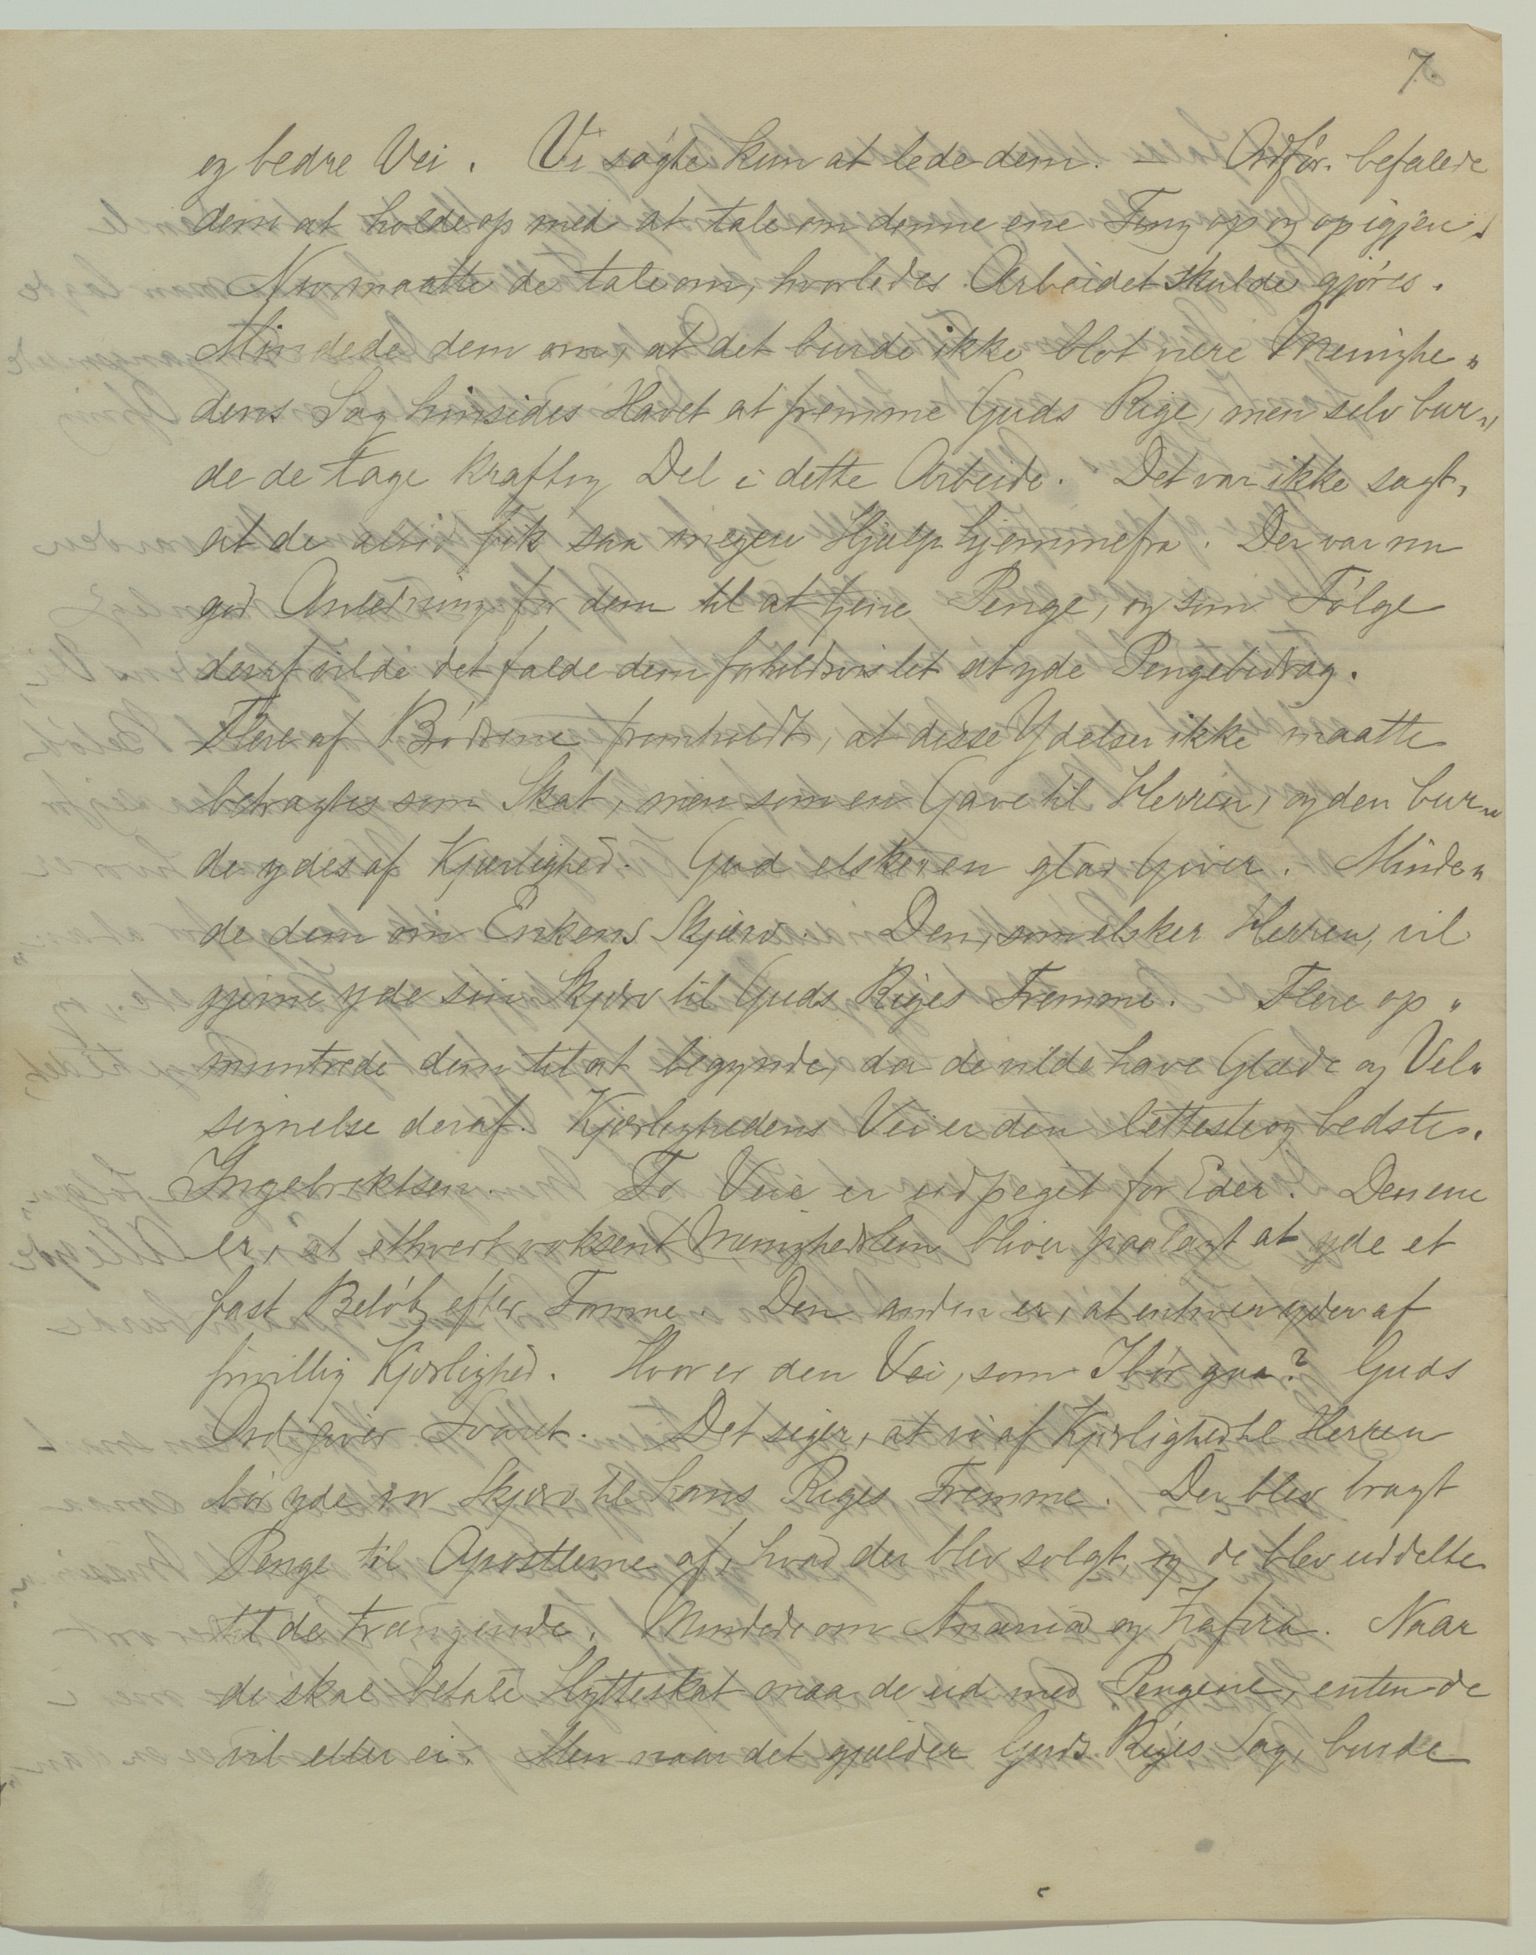 7.
og bedre Vei. Vi søgte kun at lede dem. — Ordför. befalede
dem at holde op med at tale om denne ene Ting op og op igjen.
Nu maatte de tale om, hvorledes Arbeidet skulde gjöres.
Mindede dem om, at det burde ikke blot være Menighe„
dens Sag hinsides Havet at fremme Guds Rige, men selv bur„
de de tage kraftig Del i dette Arbeide. Det var ikke sagt,
at de altid fik saa megen Hjælp hjemmefra. Der var nu
god Anledning for dem til at tjene Penge, og som Fölge
deraf vilde det falde dem forholdsvis let at yde Pengebidrag.
Flere af Brödrene fremholdt, at disse Ydelser ikke maatte
betragtes som Skat, men som en Gave til Herren, og den bur„
de ydes af Kjærlighed. Gud elsker en glad Giver. Minde„
de dem om Enkens Skjærv. Den, som elsker Herren, vil
gjerne yde sin Skjærv til Guds Riges Fremme. Flere op„
muntrede dem til at begynde, da de vilde have Glæde og Vel„
signelse deraf. Kjærlighedens Vei er den letteste og bedste.
Ingebrektsen. To Veie er udpeget for Eder. Den ene
er, at ethvert voksent Menighedslem bliver paalagt at yde et
fast Belöb efter Evne. Den anden er, at enhver yder af
frivillig Kjærlighed. Hvor er den Vei, som I bör gaa? Guds
Ord giver Svaret. Det siger, at vi af Kjærlighed til Herren
bör yde vor Skjærv til hans Riges Fremme. Der blev bragt
Penge til Apostlerne af, hvad der blev solgt, og de blev uddelte
til de trængende. Mindede om Anania og Zafira. Naar
de skal betale Hytteskat maa de ud med Pengene, enten de
vil eller ei. Men naar det gjælder Guds Riges Sag, burde